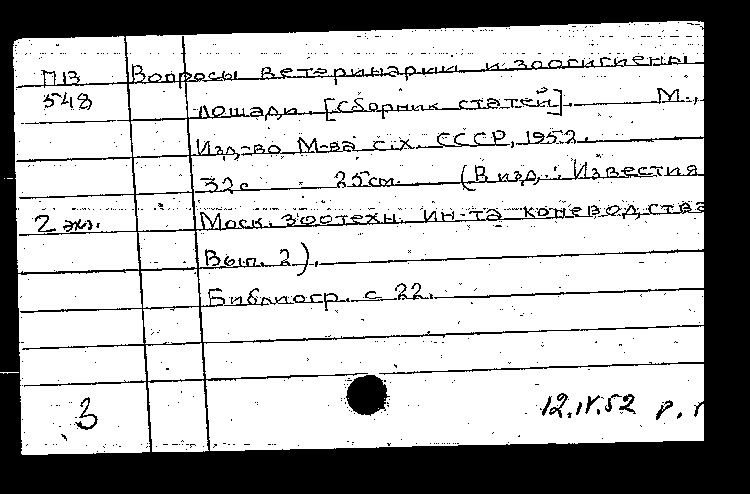 ПВ Вопросы ветеринарии и зоогигиены
548 лошади. [Сборник статей]. М.,
Изд-во М-ва с.х. СССР, 1952.
32с 25см. (В изд.: Известия
2 экз. Моск. зоотехн. ин-та коневодства
Вып. 2).
Библиогр. с 22.
3
12.IV.52 р.